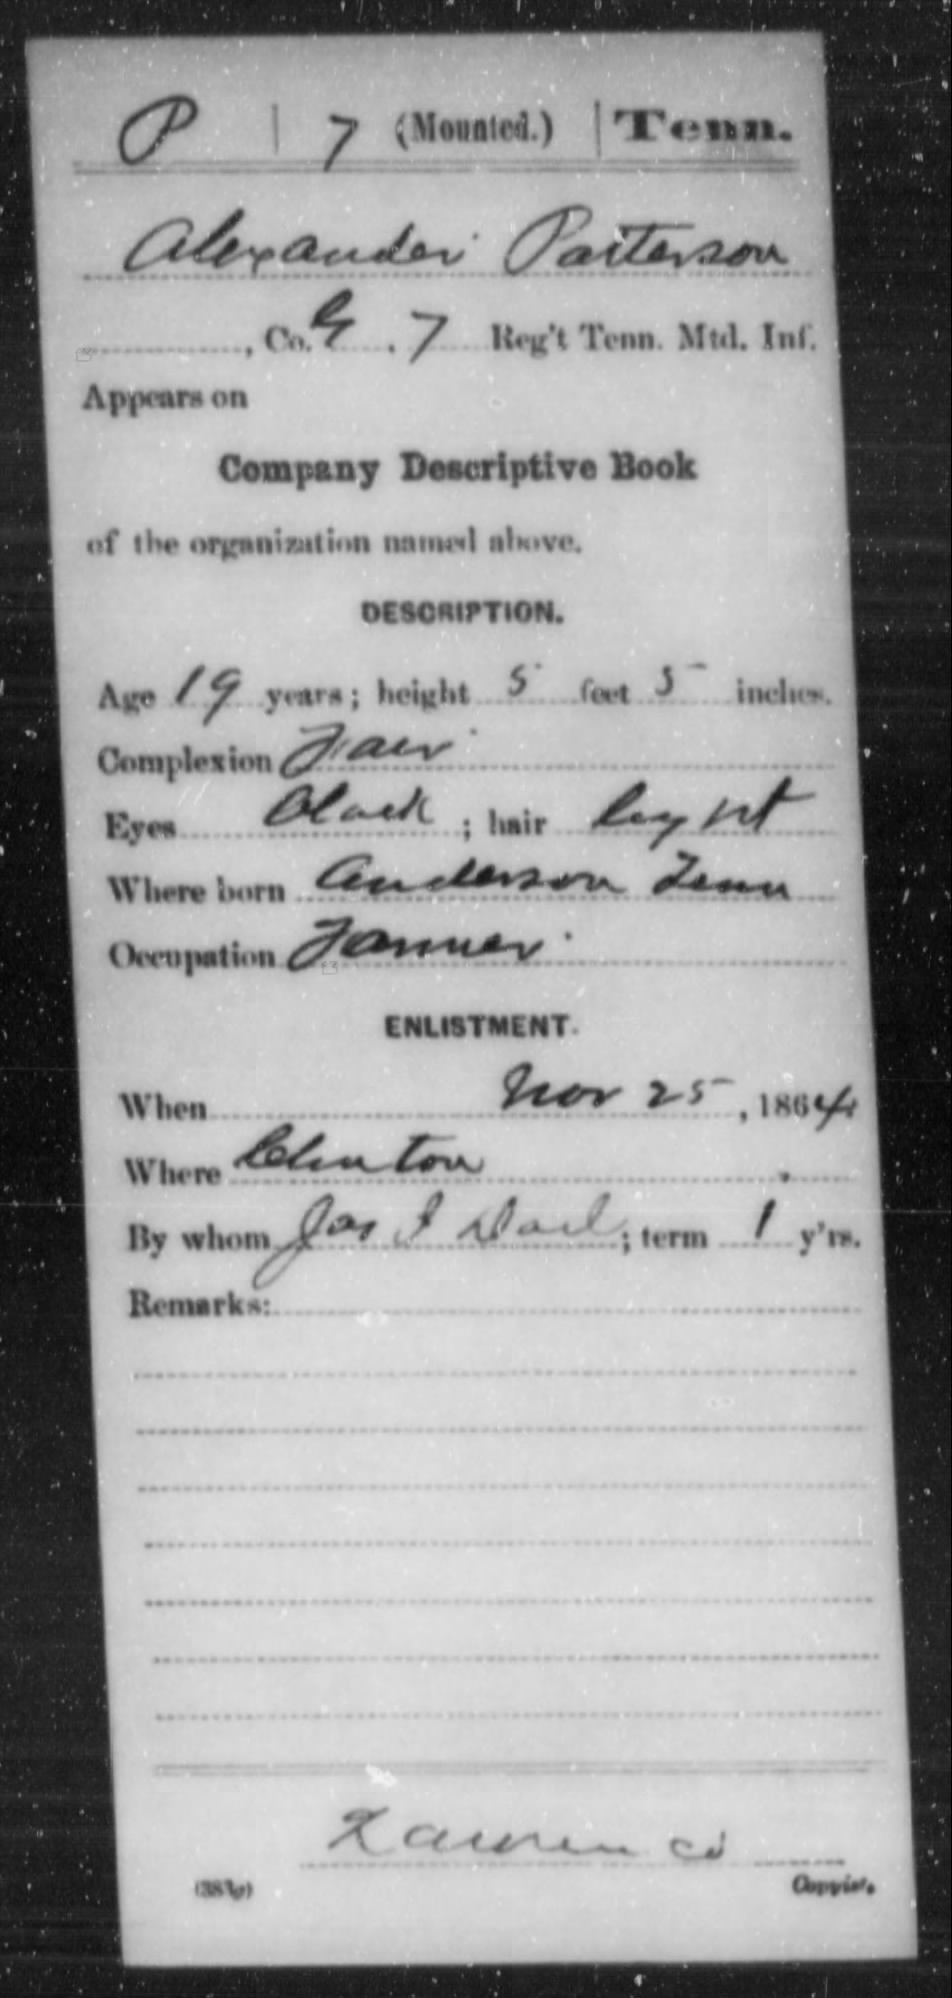 P | 7 (Mounted.) | Tenn.
Alexander Patterson
, Co. G, 7 Reg't Tenn. Mtd. Inf.
Appears on
Company Descriptive Book
of the organization named above.
DESCRIPTION.
Age 19 years; height 5 feet 5 inches.
Complexion Fair
Eyes Black; hair
Where born Anderson Tenn
Occupation Farmer
ENLISTMENT.
When Nov 25, 1864
Where Clinton.
By whom Jas I; term 1 y'rs.
Remarks:
(383g) Copyist.